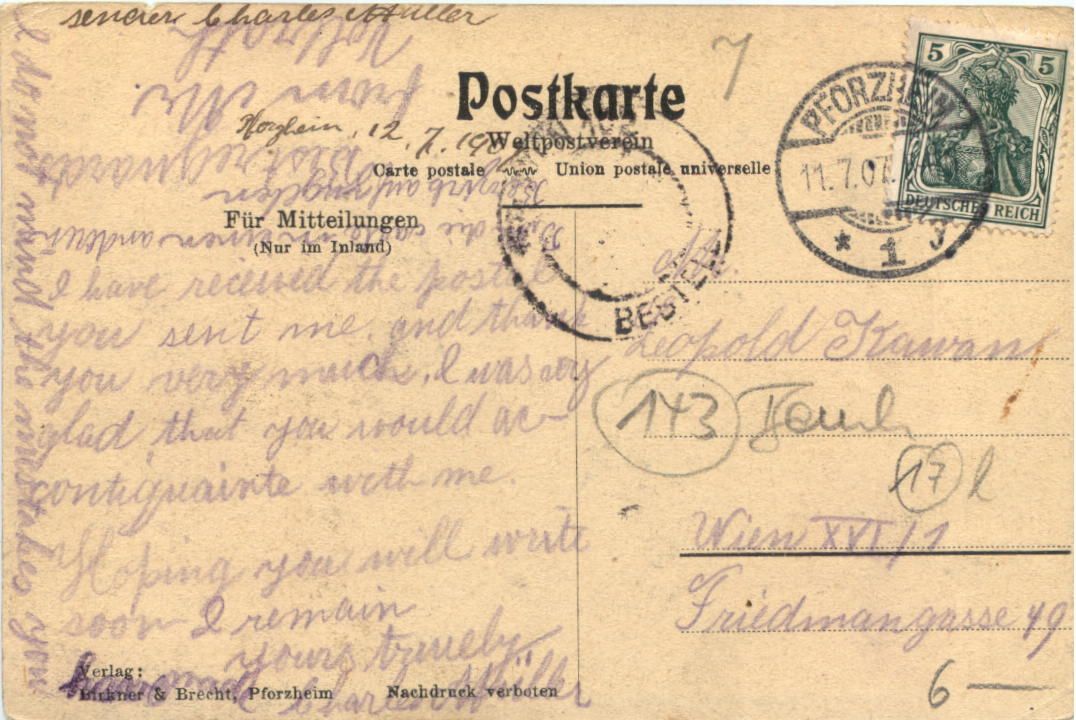 sender Charles Müller
7
Postkarte
12. 7. 19
Weltpostverein
Carte postale Union postale universelle
Für Mitteilungen
(Nur im Inland)
PFORZHEIM
11.7.07.
* 1
BESTELLT
5 5
DEUTSCHES REICH
I have received the postal
you sent me, and thank
you very much. I was very
glad, that you would ac-
contiquainte with me.
Hoping you will write
soon I remain
yours trueby
Charles Müller
I do not mind the mistakes you
from
Leopold Kawan
143
17
Wien XVI/1
Friedmangasse 49
6
Verlag:
Birkner & Brecht, Pforzheim Nachdruck verboten